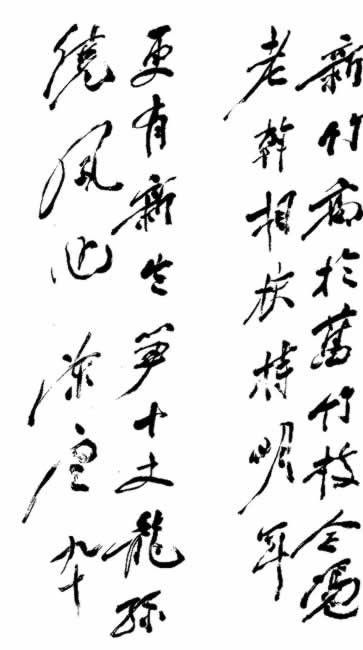 新竹高於舊竹枝全憑
老幹相扶持明年
更有新生笋十丈龍孫
繞鳳池 九十